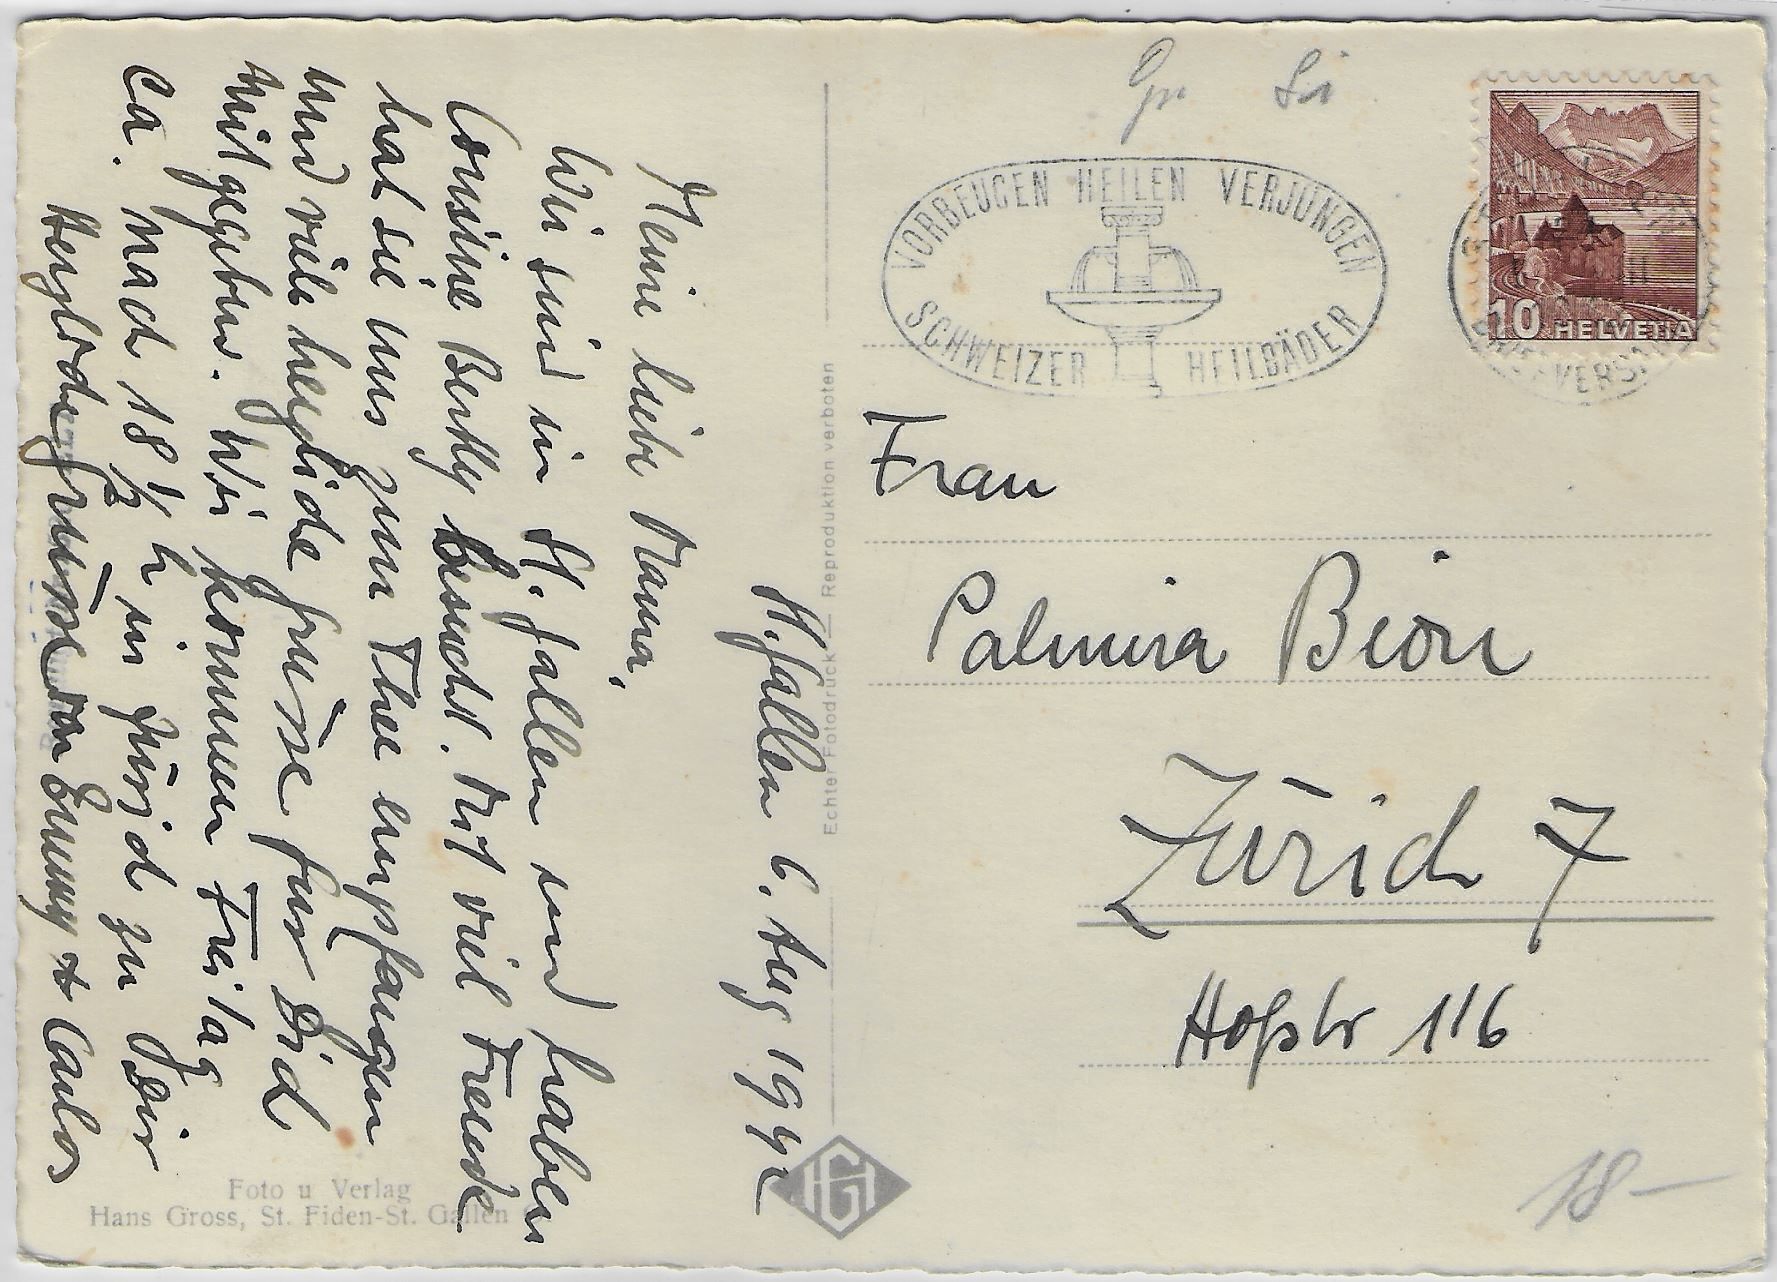 St. Gallen 6. Aug 1942
Meine liebe Mama,
Wir sind in St. Gallen und haben
Cousine Berthy besucht. Mit viel Freude
hat sie uns zum Thee empfangen
und viele herzliche Grüsse für Dich
mitgegeben. Wir kommen Freitag
ca. nach 18 1/2 h in Zürich zu Dir
Herzliche Grüsse von Emmy & Carlos
Foto u Verlag
Hans Gross, St. Fiden-St. Gallen
Echter Fotodruck — Reproduktion verboten
HG
VORBEUGEN HEILEN VERJÜNGEN
SCHWEIZER HEILBÄDER
10 HELVETIA
Frau
Palmira Bion
Zürich 7
Hofstr 116
18-